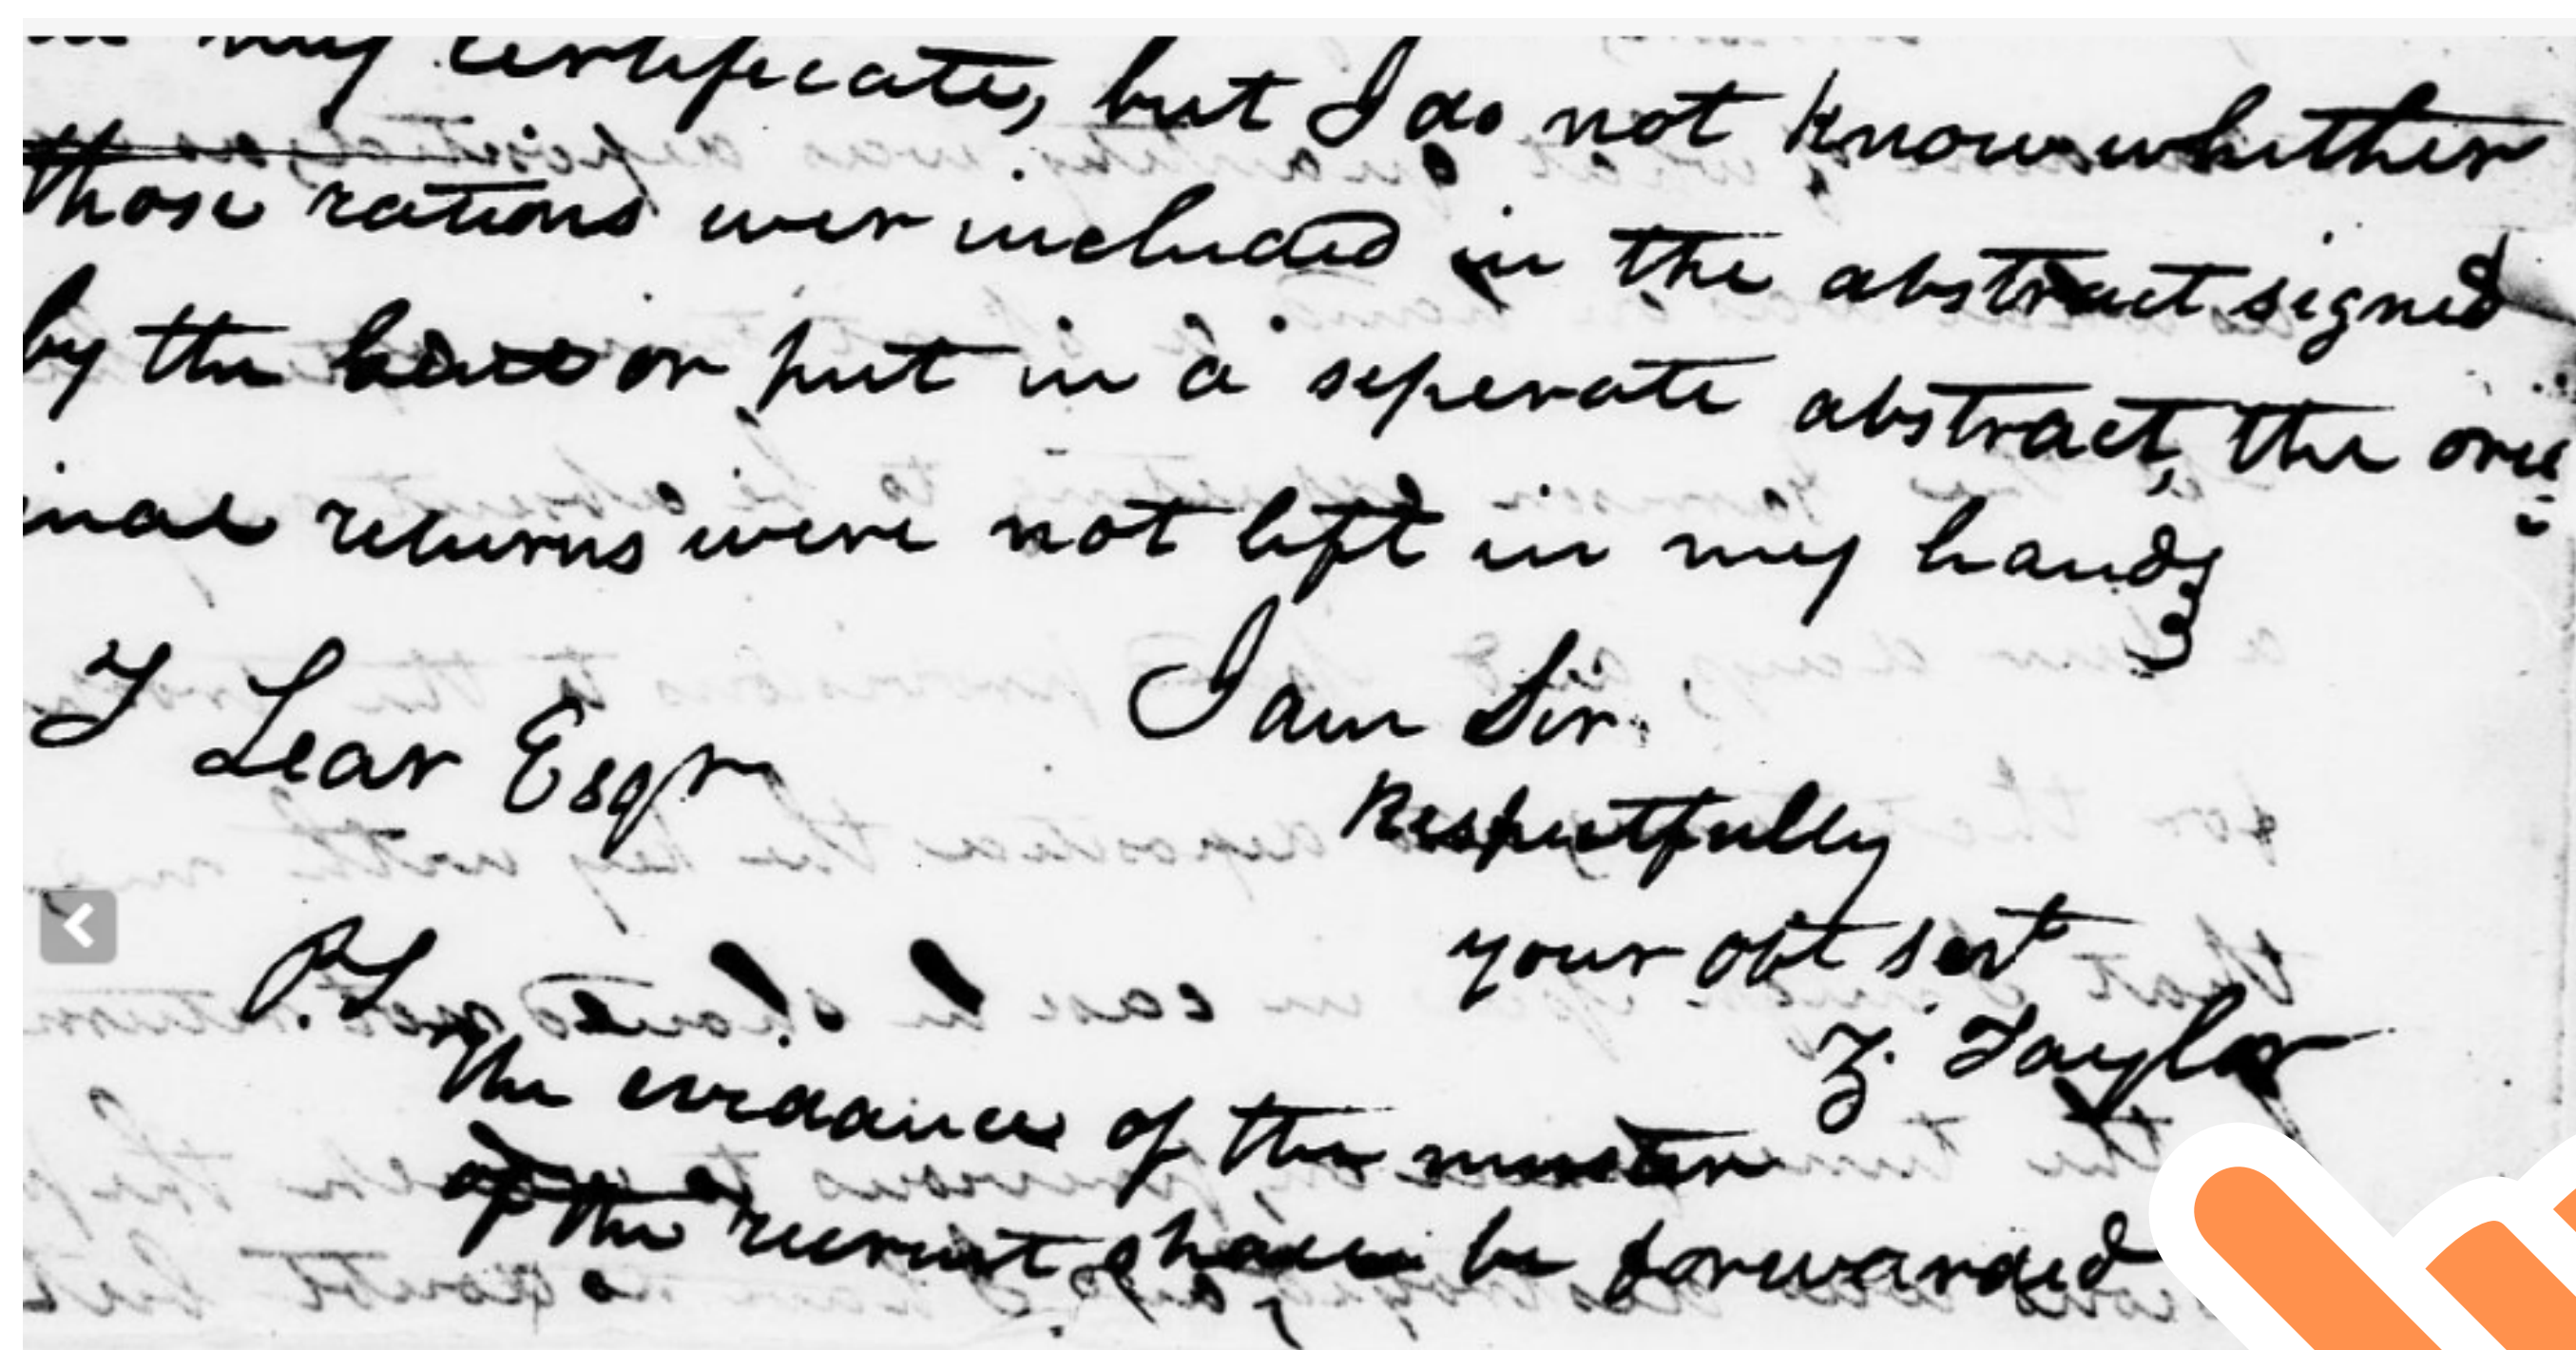 my certificate, but I do not know whether
those rations wer included in the abstract signed
by the or put in a seperate abstract, the orig
inal returns were not left in my hands
I am Sir
T Lear Esqr
Respectfully
your obt sert
Z. Taylor
P.S.
The evidance of the muster
of the recruit shall be forwarded